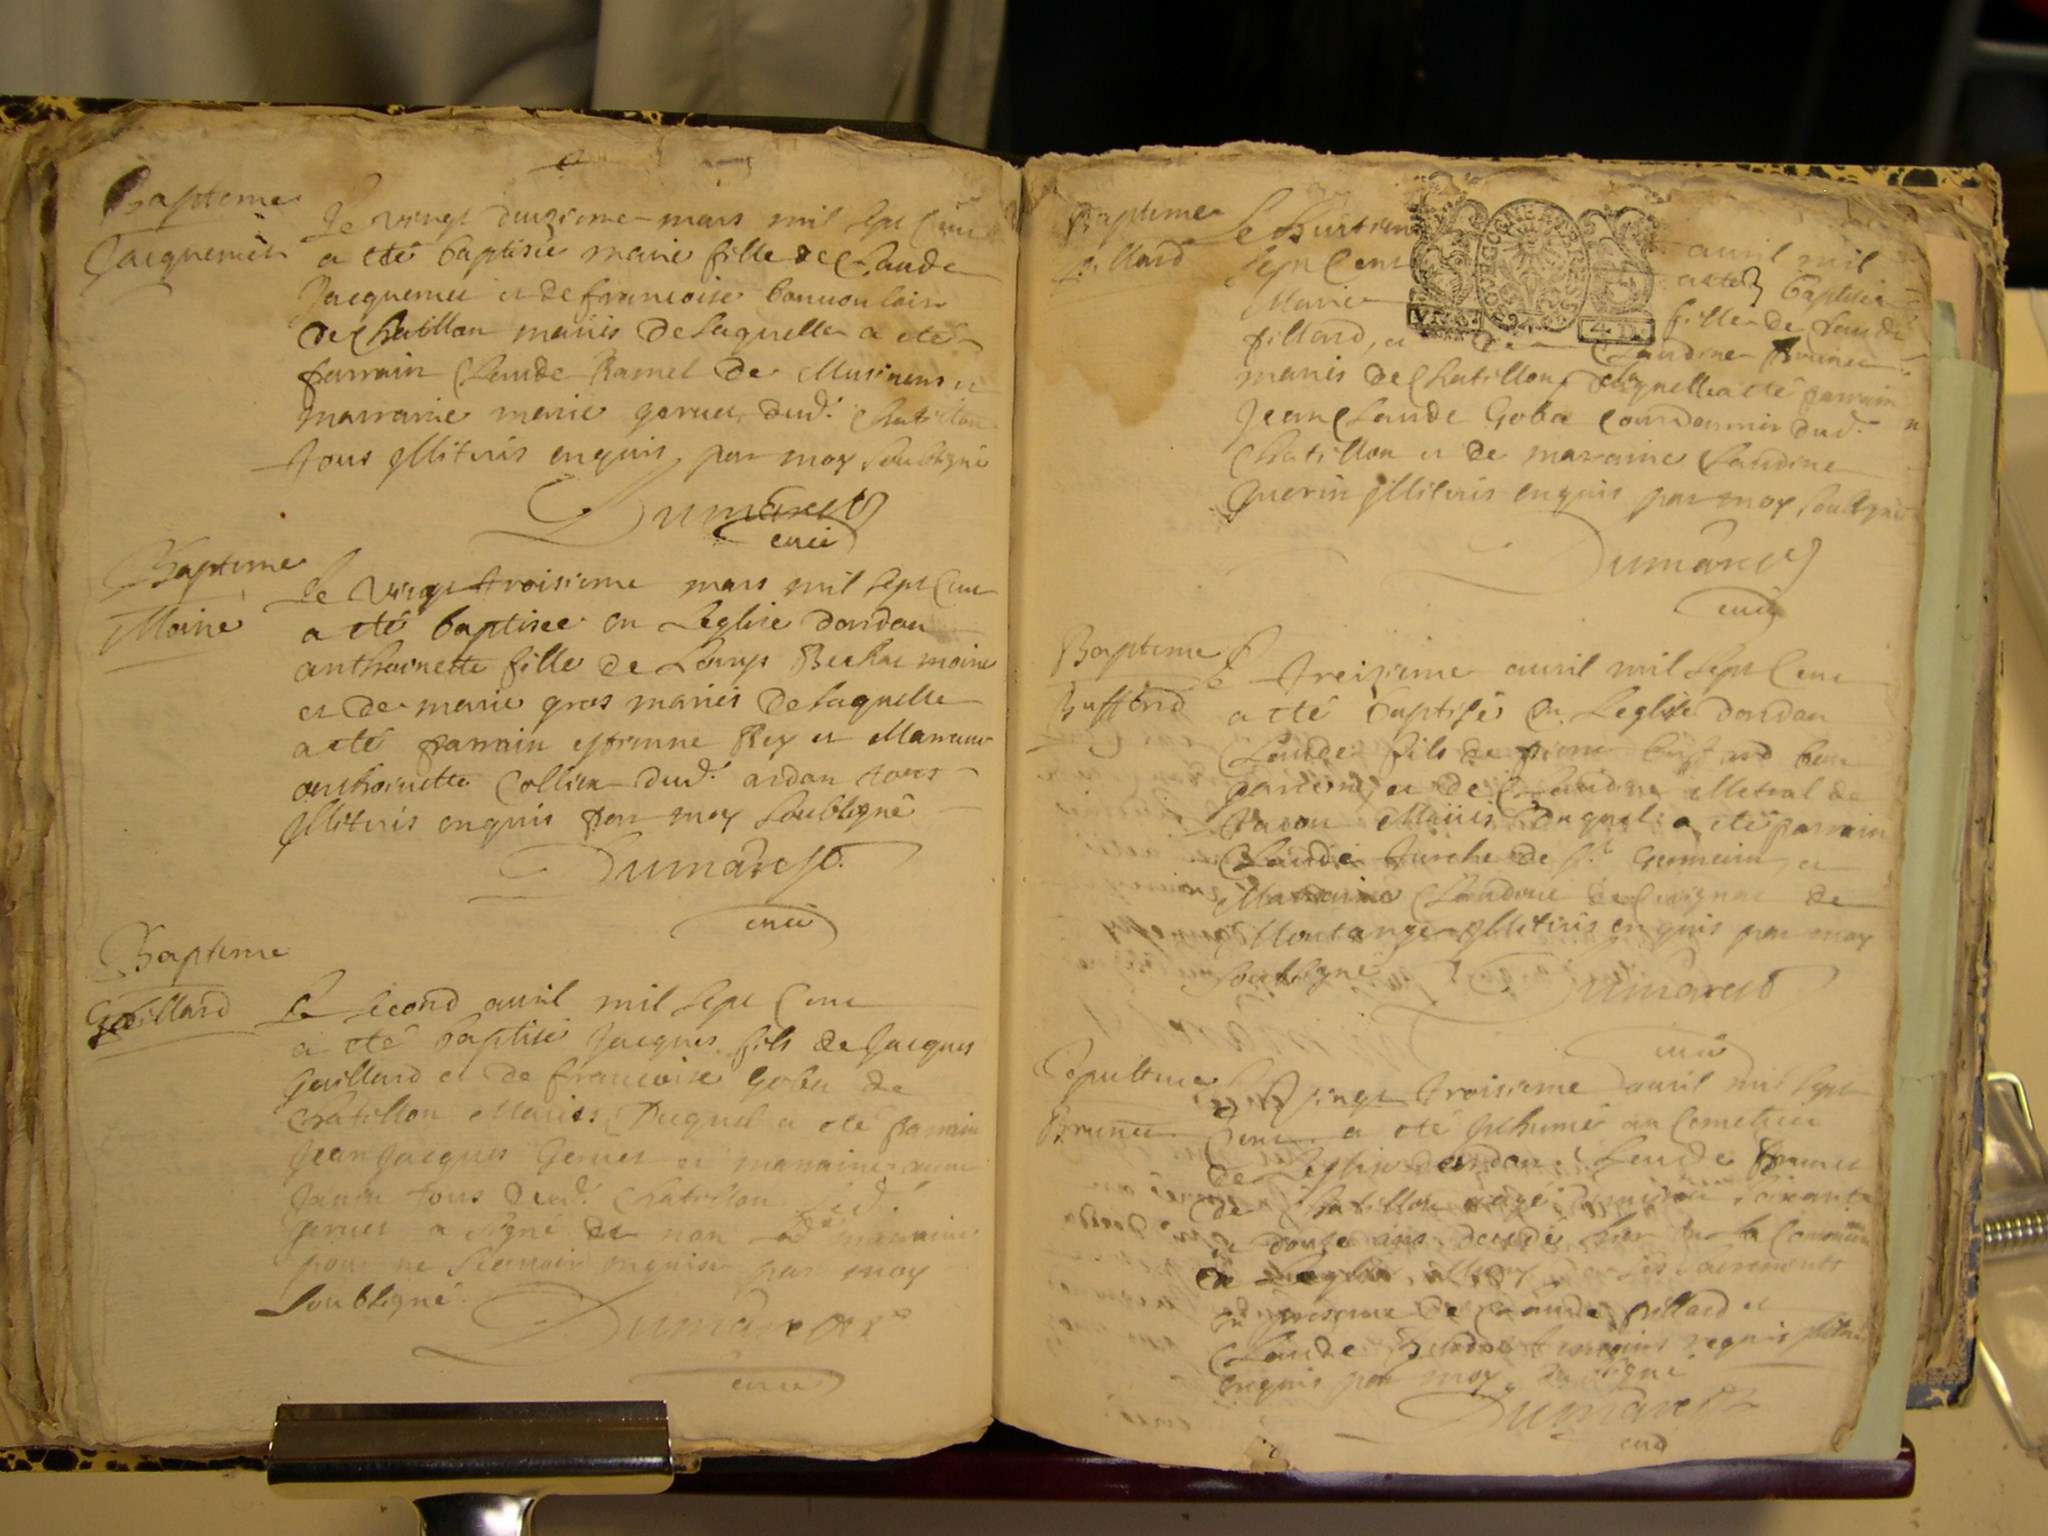 Bapteme
Jacquemet
Le vingt deuzieme mars mil sept Cent
a eté baptisée marie fille de Claude
Jacquemet et de francoise
de Chatillon mariés De laquelle a eté
parrain Claude Ramel de Musinens et
marraine marie gervet dud. Chatillon
tous illiteris enquis par moy soubsigné
Dumarest
curé
Bapteme
Moine
Le vingt troisieme mars mil sept Cent
a eté baptisee en Leglise dardon
anthoinette fille de Louys moine
et de marie gros mariés De laquelle
a eté parrain estienne Rey et Marraine
anthoinette Collier dud. ardon tous
illiteris enquis par moy soubsigné
Dumarest
curé
Bapteme
Gaillard
Le second avril mil sept Cent
a eté baptisé Jacques fils de Jacques
Gaillard et de francoise Gobet de
Chatillon Mariés Duquel a eté parrain
Jean Jacques Gervet et marraine
tous dud. Chatillon Led.
a signé et non lad. marraine
pour ne scavoir enquise par moy
soubsigné
Dumarest
curé
Bapteme
fillard
Le huitieme avril mil
sept Cent a eté baptisée
Marie fille de Claude
fillard, et de Claudine Brunet
mariés de Chatillon, de laquelle a eté parrain
Jean Claude Goba Cordonnier dud.
Chatillon et de maraine Claudine
illiteris enquis par moy soubsigné
Dumarest
curé
Bapteme
Buffard
Le treizieme avril mil sept Cent
a eté baptisé en Leglise dardon
Claude fils de pierre buffard
et de Claudine Metral de
Mariés Duquel a eté parrain
Claude turche de St. germain, et
Marraine Claudine de
Montange illiteris enquis par moy
soubsigné
Dumarest
curé
Sepulture
Brunet
Le vingt troisieme avril mil sept
Cent a eté inhumé au Cemetiere
de Leglise dardon Claude Brunet
de Chatillon agé denviron soixante
et douze ans decedé hier dans la Communion
de Leglise, muny de ses sacrements
en presence de Claude fillard et
Claude temoins requis illiteris
enquis par moy soubsigné
Dumarest
curé